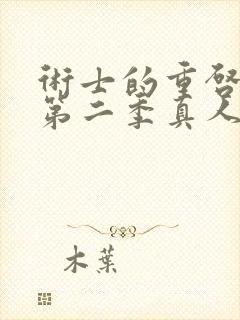 術士的重啓
第二季真人
木葉